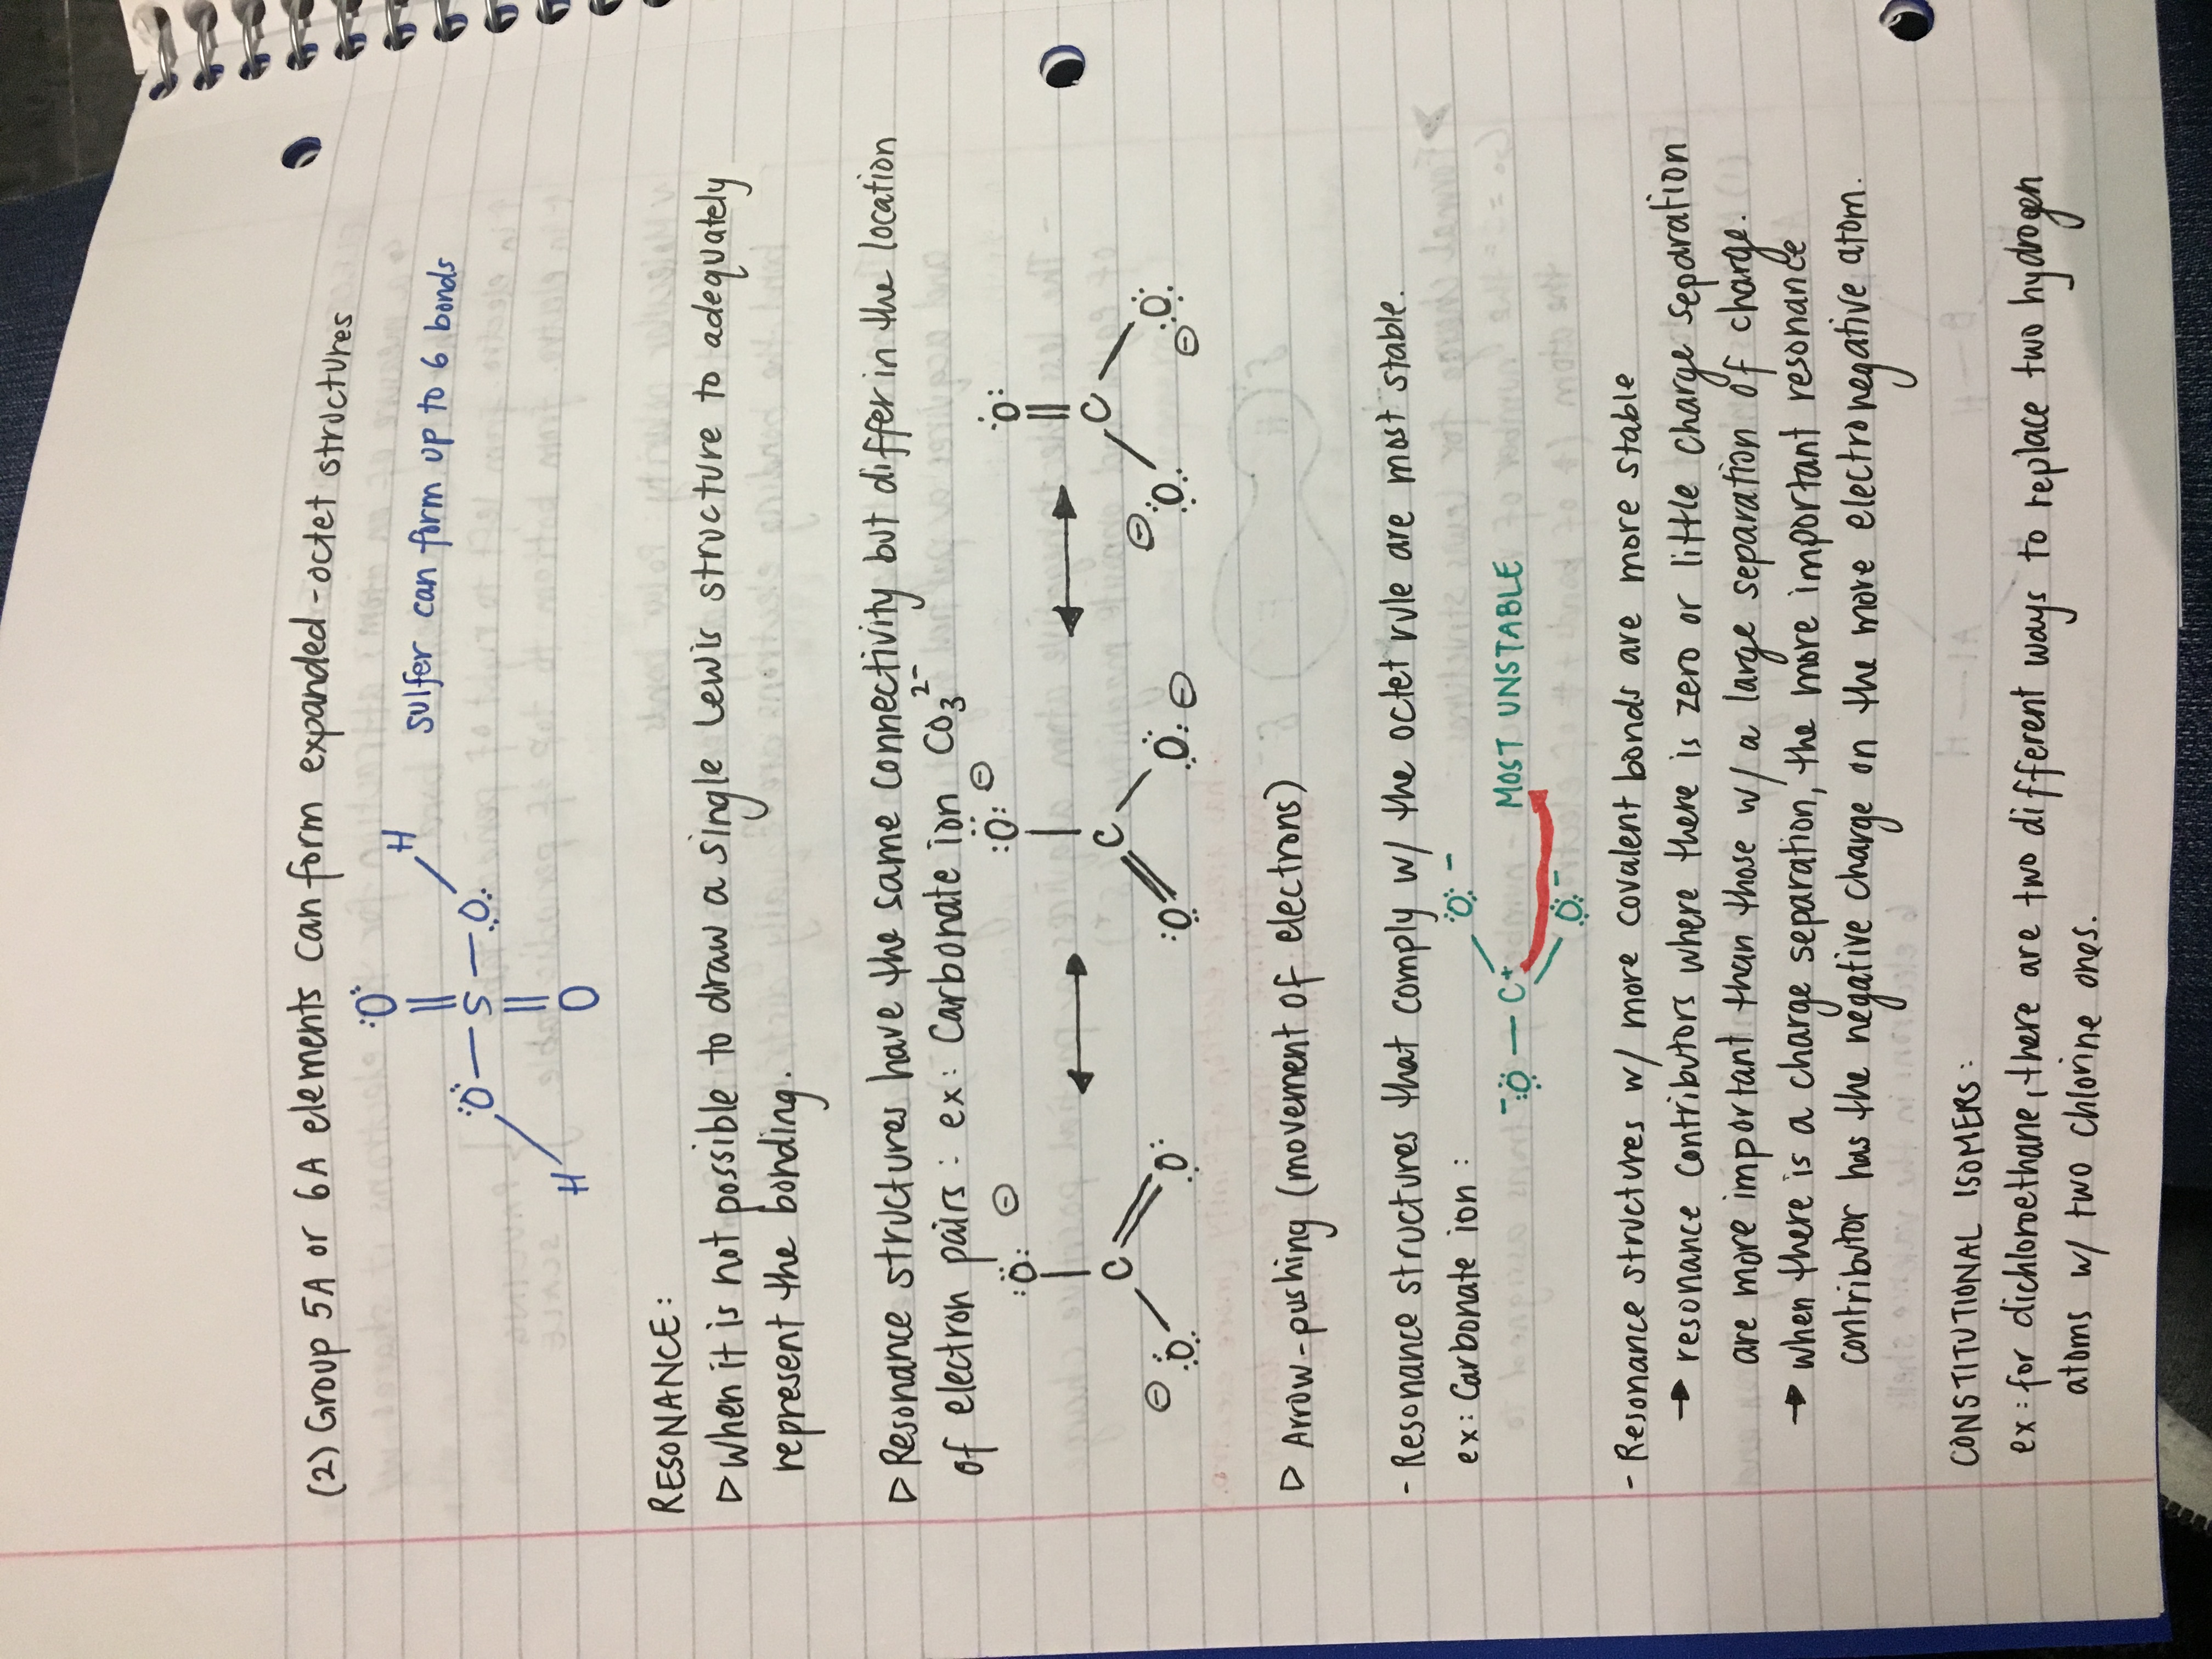 (2) Group 5A or 6A elements can form expanded-octet structures
:Ö
sulfer can form up to 6 bonds
H
:Ö — S — Ö:
H
O
RESONANCE:
▷ When it is not possible to draw a single Lewis structure to adequately
represent the bonding.
▷ Resonance structures have the same connectivity but differ in the location
of electron pairs: ex: Carbonate ion CO₃²⁻
:Ö: ⊖ :Ö: ⊖ :O:
C C C
⊖ :Ö: O: :O Ö: ⊖ ⊖ :Ö: :Ö: ⊖
▷ Arrow-pushing (movement of electrons)
- Resonance structures that comply w/ the octet rule are most stable.
ex: Carbonate ion:
:Ö: -
- :Ö — C+ MOST UNSTABLE
:Ö: -
- Resonance structures w/ more covalent bonds are more stable
→ resonance contributors where there is zero or little charge separation
are more important than those w/ a large separation of charge.
→ when there is a charge separation, the more important resonance
contributor has the negative charge on the more electronegative atom.
CONSTITUTIONAL ISOMERS:
ex: for dichloroethane, there are two different ways to replace two hydrogen
atoms w/ two chlorine ones.